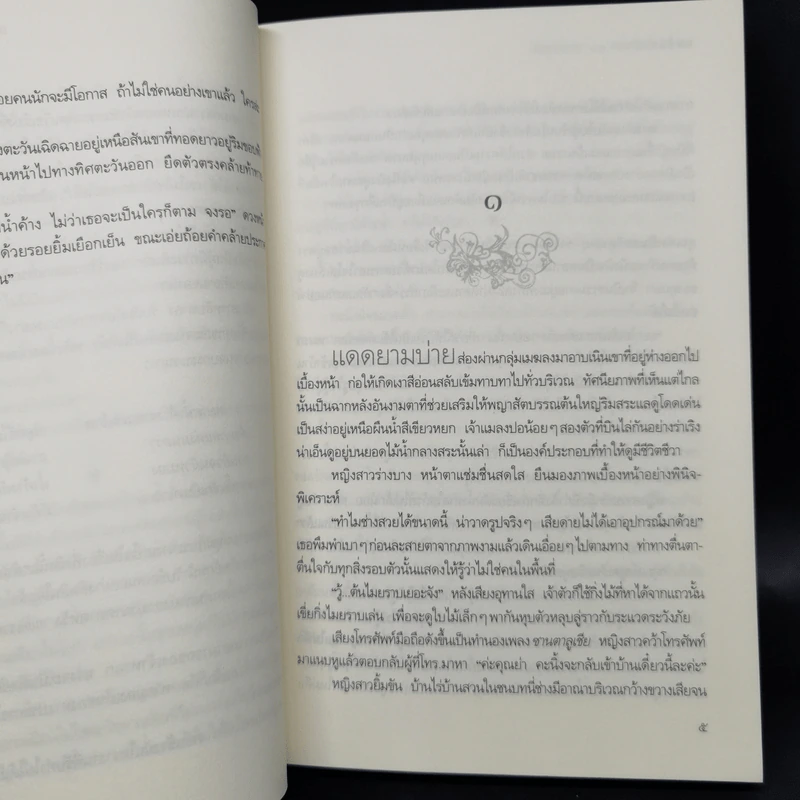 อยคนนักจะมีโอกาส ถ้าไม่ใช่คนอย่างเขาแล้ว
งตะวันเฉิดฉายอยู่เหนือสันเขาที่ทอดยาวอยู่ริมขอบฟ้า
นหน้าไปทางทิศตะวันออก ยืดตัวตรงคล้ายท้าทาย
น้ำค้าง ไม่ว่าเธอจะเป็นใครก็ตาม จงรอ”
ด้วยรอยยิ้มเยือกเย็น ขณะเอ่ยถ้อยคำคล้ายประกา
น”
๑
แดดยามบ่ายส่องผ่านกลุ่มเมฆลงมาอาบเนินเขาที่อยู่ห่างออกไป
เบื้องหน้า ก่อให้เกิดเงาสีอ่อนสลับเข้มทาบทาไปทั่วบริเวณ ทัศนียภาพที่เห็นแต่ไกล
นั้นเป็นฉากหลังอันงามตาที่ช่วยเสริมให้พญาสัตบรรณต้นใหญ่ริมสระแลดูโดดเด่น
เป็นสง่าอยู่เหนือผืนน้ำสีเขียวหยก เจ้าแมลงปอน้อยๆ สองตัวที่บินไล่กันอย่างร่าเริง
น่าเอ็นดูอยู่บนยอดไม้น้ำกลางสระนั้นเล่า ก็เป็นองค์ประกอบที่ทำให้ดูมีชีวิตชีวา
หญิงสาวร่างบาง หน้าตาแช่มชื่นสดใส ยืนมองภาพเบื้องหน้าอย่างพินิจ-
พิเคราะห์
“ทำไมช่างสวยได้ขนาดนี้ น่าวาดรูปจริงๆ เสียดายไม่ได้เอาอุปกรณ์มาด้วย”
เธอพึมพำเบาๆ ก่อนละสายตาจากภาพงามแล้วเดินเอื่อยๆ ไปตามทาง ท่าทางตื่นตา-
ตื่นใจกับทุกสิ่งรอบตัวนั้นแสดงให้รู้ว่าไม่ใช่คนในพื้นที่
“วู้...ต้นไมยราบเยอะจัง” หลังเสียงอุทานใส เจ้าตัวก็ใช้กิ่งไม้ที่หาได้จากแถวนั้น
เขี่ยกิ่งไมยราบเล่น เพื่อจะดูใบไม้เล็กๆ พากันหุบตัวหลุบลู่ราวกับระแวดระวังภัย
เสียงโทรศัพท์มือถือดังขึ้นเป็นทำนองเพลง ซานตาลูเซีย หญิงสาวคว้าโทรศัพท์
มาแนบหูแล้วตอบกลับผู้ที่โทร.มาหา “ค่ะคุณย่า คะนิ้งจะกลับเข้าบ้านเดี๋ยวนี้ละค่ะ”
หญิงสาวยิ้มขัน บ้านไร่บ้านสวนในชนบทนี่ช่างมีอาณาบริเวณกว้างขวางเสียจน
๕